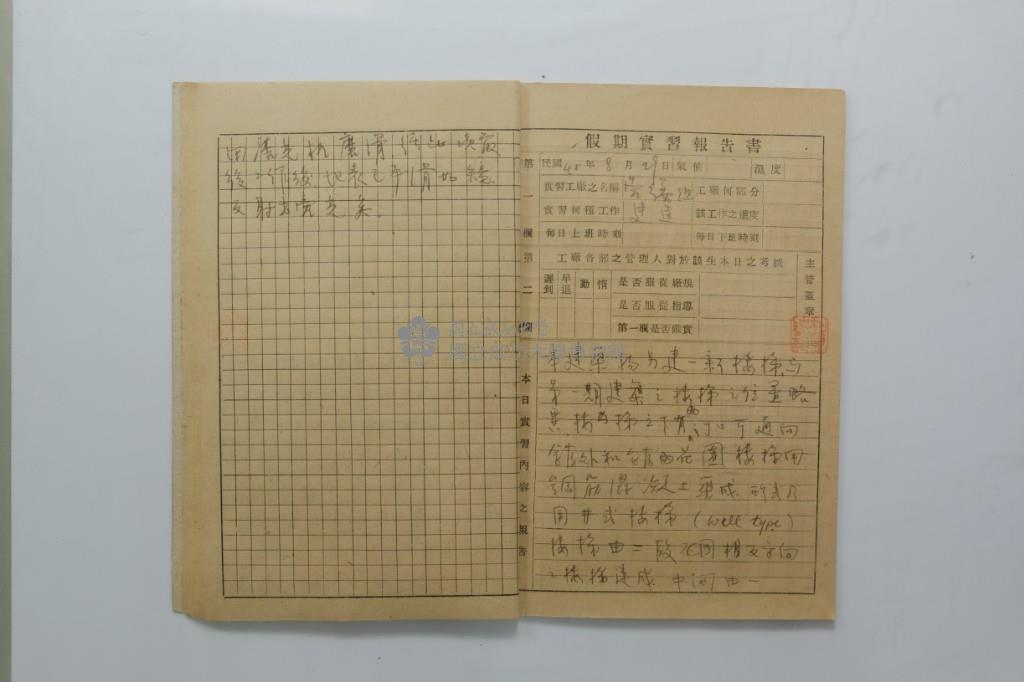 用磨光机磨滑
後工作後地表已平滑如鏡
反射出亮光矣。
假期實習報告書
第一欄
民國40年8月29日氣候 溫度
實習工廠之名稱 營繕組 工廠何部分
實習何種工作 建造 該工作之進度
每日上班時刻 每日下班時刻
第二欄
工廠各部之管理人對於該生本日之考核
主管蓋章
遲到 早退 勤 惰 是否服從廠規
是否服從指導
第一欄是否確實
本日實習內容之報告
本建築物另建一新樓梯與
第一期建築之樓梯之位置略
異樓梯之下有門口可通向
館外和館內花園樓梯用
鋼筋混凝土築成 形式乃
用井式樓梯 (well type)
樓梯由二段不同相反方向
之樓梯達成 中间由一